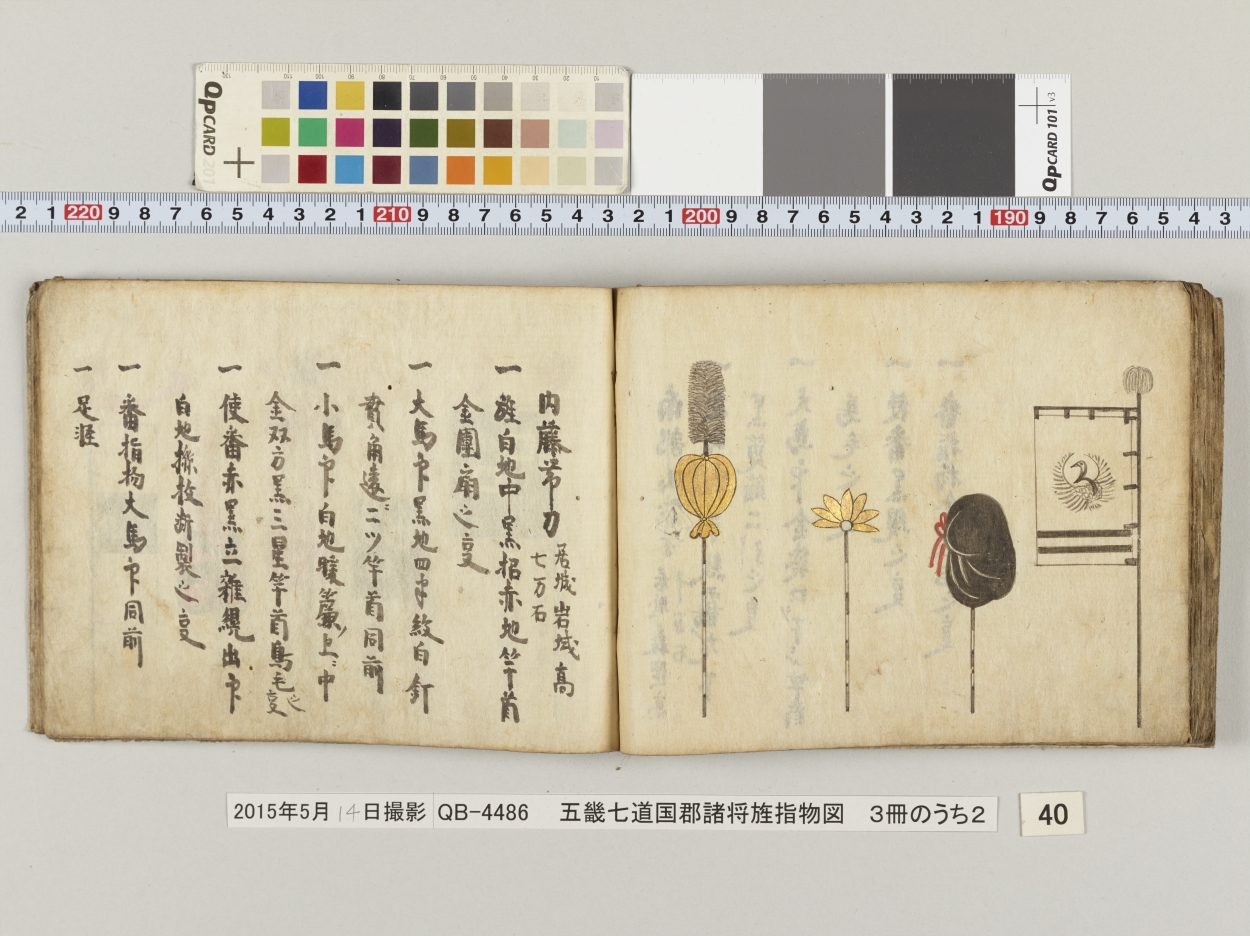 QpCARD 201
QpCARD 101 v3
2 1 220 9 8 7 6 5 4 3 2 1 210 9 8 7 6 5 4 3 2 1 200 9 8 7 6 5 4 3 2 1 190 9 8 7 6 5 4 3
内藤帯刀 居城岩城高
七万石
一 旌白地中黒招赤地竿首
金團扇之㕝
一 大馬印黒地四半紋白釘
貫角違二ツ竿首同前
一 小馬印白地暖簾上ニ中
金双方黒三星竿首鳥毛之㕝
一 使番赤黒立雜纐出印
白地撫枚断製之㕝
一 番指物大馬印同前
一 足涯
2015年5月14日撮影 QB-4486 五畿七道国郡諸将旌指物図 3冊のうち2
40